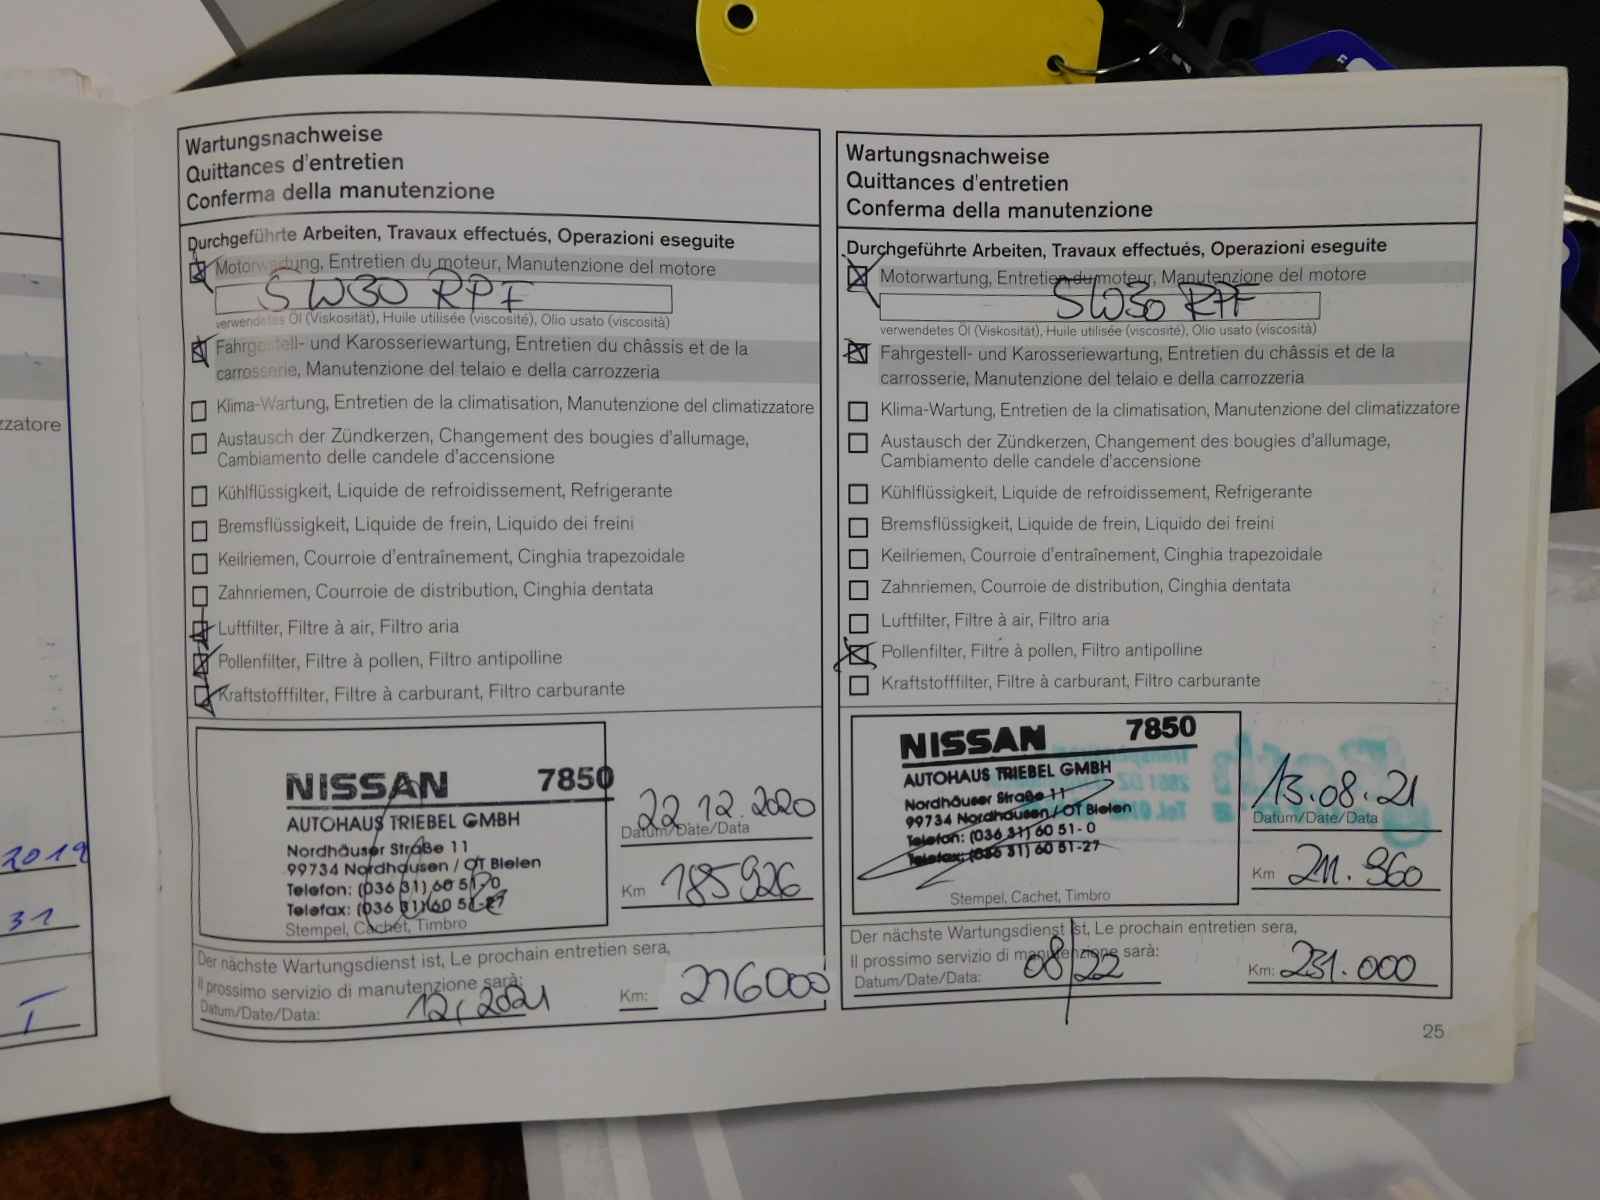 zzatore
2019
31
Wartungsnachweise
Quittances d'entretien
Conferma della manutenzione
Durchgeführte Arbeiten, Travaux effectués, Operazioni eseguite
Motorwartung, Entretien du moteur, Manutenzione del motore
5W30 RPF
verwendetes Öl (Viskosität), Huile utilisée (viscosité), Olio usato (viscosità)
Fahrgestell- und Karosseriewartung, Entretien du châssis et de la
carrosserie, Manutenzione del telaio e della carrozzeria
Klima-Wartung, Entretien de la climatisation, Manutenzione del climatizzatore
Austausch der Zündkerzen, Changement des bougies d'allumage,
Cambiamento delle candele d'accensione
Kühlflüssigkeit, Liquide de refroidissement, Refrigerante
Bremsflüssigkeit, Liquide de frein, Liquido dei freini
Keilriemen, Courroie d'entraînement, Cinghia trapezoidale
Zahnriemen, Courroie de distribution, Cinghia dentata
Luftfilter, Filtre à air, Filtro aria
Pollenfilter, Filtre à pollen, Filtro antipolline
Kraftstofffilter, Filtre à carburant, Filtro carburante
NISSAN 7850
AUTOHAUS TRIEBEL GMBH
Nordhäuser Straße 11
99734 Nordhausen / OT Bielen
Telefon: (036 31) 60 51-0
Telefax: (036 31) 60 51-27
Stempel, Cachet, Timbro
22.12.2020
Datum/Date/Data
Km 185926
Der nächste Wartungsdienst ist, Le prochain entretien sera,
Il prossimo servizio di manutenzione sarà:
Datum/Date/Data: 12/2021 Km: 216000
Wartungsnachweise
Quittances d'entretien
Conferma della manutenzione
Durchgeführte Arbeiten, Travaux effectués, Operazioni eseguite
Motorwartung, Entretien du moteur, Manutenzione del motore
5W30 RPF
verwendetes Öl (Viskosität), Huile utilisée (viscosité), Olio usato (viscosità)
Fahrgestell- und Karosseriewartung, Entretien du châssis et de la
carrosserie, Manutenzione del telaio e della carrozzeria
Klima-Wartung, Entretien de la climatisation, Manutenzione del climatizzatore
Austausch der Zündkerzen, Changement des bougies d'allumage,
Cambiamento delle candele d'accensione
Kühlflüssigkeit, Liquide de refroidissement, Refrigerante
Bremsflüssigkeit, Liquide de frein, Liquido dei freini
Keilriemen, Courroie d'entraînement, Cinghia trapezoidale
Zahnriemen, Courroie de distribution, Cinghia dentata
Luftfilter, Filtre à air, Filtro aria
Pollenfilter, Filtre à pollen, Filtro antipolline
Kraftstofffilter, Filtre à carburant, Filtro carburante
NISSAN 7850
AUTOHAUS TRIEBEL GMBH
Nordhäuser Straße 11
99734 Nordhausen / OT Bielen
Telefon: (036 31) 60 51-0
Telefax: (036 31) 60 51-27
Stempel, Cachet, Timbro
13.08.21
Datum/Date/Data
Km 211.960
Der nächste Wartungsdienst ist, Le prochain entretien sera,
Il prossimo servizio di manutenzione sarà:
Datum/Date/Data: 08/22 Km: 231.000
25